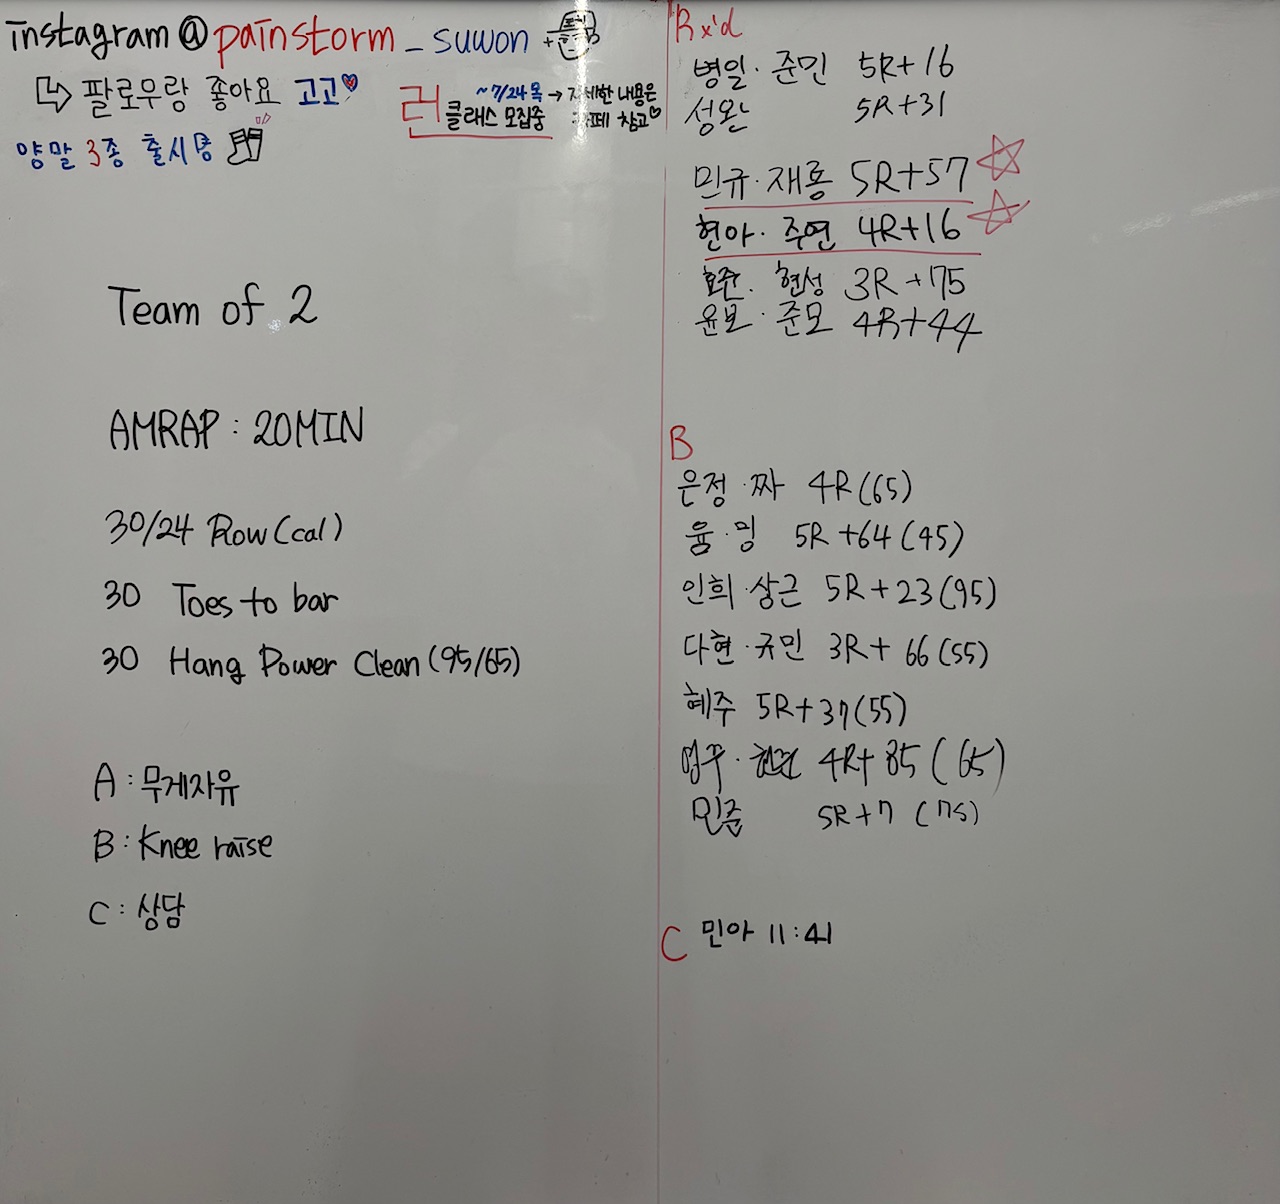 instagram@painstorm_suwon
팔로우랑 좋아요 고고
런 클래스 모집중
~7/24 목 → 자세한 내용은
카페 참고
양말 3종 출시 뿅
Team of 2
AMRAP : 20MIN
30/24 Row(cal)
30 Toes to bar
30 Hang Power Clean(95/65)
A : 무게자유
B : Knee raise
C : 상담
Rx'd
병일 · 준민 5R+16
성완 5R+31
민규 · 재룡 5R+57
현아 · 주연 4R+16
호준 · 현성 3R+75
윤보 · 준모 4R+44
B
은정 · 짜 4R(65)
윰 · 밍 5R+64(45)
인희 · 상근 5R+23(95)
다현 · 규민 3R+66(55)
혜주 5R+37(55)
영꾸 · 4R+85(65)
민준 5R+7(75)
C 민아 11:41